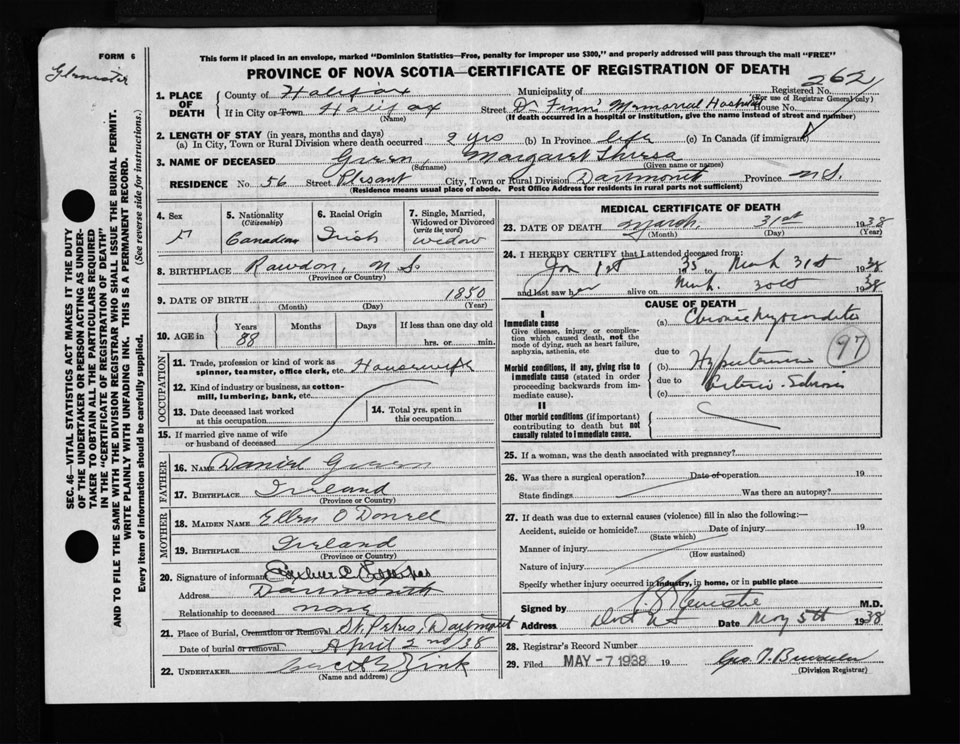 FORM 6
This form if placed in an envelope, marked "Dominion Statistics—Free, penalty for improper use $300," and properly addressed will pass through the mail "FREE"
PROVINCE OF NOVA SCOTIA—CERTIFICATE OF REGISTRATION OF DEATH
262
1. PLACE OF DEATH
County of Halifax Municipality of Registered No.
(For use of Registrar General only)
If in City or Town. Halifax Street Memorial Hospital House No.
(Name) (If death occurred in a hospital or institution, give the name instead of street and number)
2. LENGTH OF STAY (in years, months and days)
(a) In City, Town or Rural Division where death occurred 9 yrs (b) In Province life (c) In Canada (if immigrant)
3. NAME OF DECEASED Green, Margaret Thresa
(Surname) (Given name or names)
RESIDENCE No. 56 Street Plesant City, Town or Rural Division Dartmouth Province N.S.
(Residence means usual place of abode. Post Office Address for residents in rural parts not sufficient)
SEC. 46—VITAL STATISTICS ACT MAKES IT THE DUTY
OF THE UNDERTAKER OR PERSON ACTING AS UNDER-
TAKER TO OBTAIN ALL THE PARTICULARS REQUIRED
IN THE "CERTIFICATE OF REGISTRATION OF DEATH"
AND TO FILE THE SAME WITH THE DIVISION REGISTRAR WHO SHALL ISSUE THE BURIAL PERMIT.
WRITE PLAINLY WITH UNFADING INK. THIS IS A PERMANENT RECORD.
Every item of information should be carefully supplied. (See reverse side for instructions.)
4. Sex
F
5. Nationality
(Citizenship)
Canadian
6. Racial Origin
Irish
7. Single, Married,
Widowed or Divorced
(write the word)
widow
8. BIRTHPLACE Rawdon, N.S.
(Province or Country)
9. DATE OF BIRTH 1850
(Month) (Day) (Year)
10. AGE in Years Months Days If less than one day old
88 hrs. or min.
OCCUPATION
11. Trade, profession or kind of work as
spinner, teamster, office clerk, etc. Housewife
12. Kind of industry or business, as cotton-
mill, lumbering, bank, etc.
13. Date deceased last worked
at this occupation
14. Total yrs. spent in
this occupation
15. If married give name of wife
or husband of deceased
FATHER
16. NAME Daniel Green
17. BIRTHPLACE Ireland
(Province or Country)
MOTHER
18. MAIDEN NAME Ellen O Donell
19. BIRTHPLACE Ireland
(Province or Country)
20. Signature of informant
Address Dartmouth
Relationship to deceased none
21. Place of Burial, Cremation or Removal St. Peters, Dartmouth
Date of burial or removal April 2nd/38
22. UNDERTAKER Zink
(Name and address)
MEDICAL CERTIFICATE OF DEATH
23. DATE OF DEATH March 31st 1938
(Month) (Day) (Year)
24. I HEREBY CERTIFY that I attended deceased from:
Jan 1st 1935 to March 31st 1938
and last saw her alive on March 30th 1938
CAUSE OF DEATH
I
Immediate cause
Give disease, injury or complica-
tion which caused death, not the
mode of dying, such as heart failure,
asphyxia, asthenia, etc
(a) Chronic Myocarditis
97
Morbid conditions, if any, giving rise to
immediate cause (stated in order
proceeding backwards from im-
mediate cause).
due to
(b) Hypertension
due to Arterio-Sclerosis
(c)
II
Other morbid conditions (if important)
contributing to death but not
causally related to immediate cause.
25. If a woman, was the death associated with pregnancy?
26. Was there a surgical operation? Date of operation 19
State findings Was there an autopsy?
27. If death was due to external causes (violence) fill in also the following:—
Accident, suicide or homicide? Date of injury 19
(State which)
Manner of injury
(How sustained)
Nature of injury
Specify whether injury occurred in industry, in home, or in public place
Signed by M.D.
Address Dart NS Date May 5th 1938
28. Registrar's Record Number
29. Filed MAY -7 1938 19
(Division Registrar)